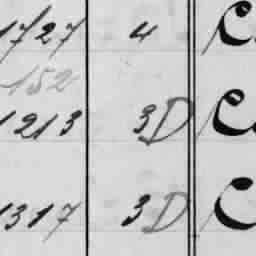 1727 4 C
152
1213 3D C
1317 3D C